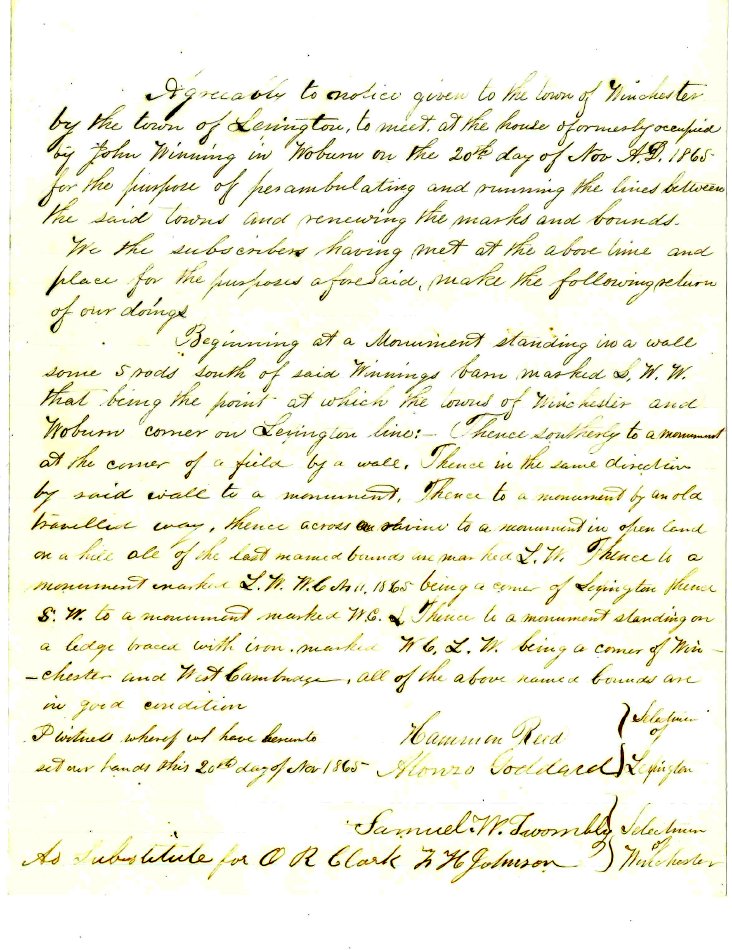 Agreeably to notice given to the town of Winchester
by the town of Lexington, to meet, at the house of formerly occupied
by John Winning in Woburn on the 20th day of Nov A.D. 1865
for the purpose of perambulating and running the lines between
the said towns and renewing the marks and bounds.
We the subscribers having met at the above time and
place for the purposes aforesaid, make the following return
of our doings
Beginning at a Monument standing in a wall
some 5 rods south of said Winnings barn marked L. W. W.
that being the point at which the towns of Winchester and
Woburn corner on Lexington line:– Thence southerly to a monument
at the corner of a field by a wall, Thence in the same direction
by said wall to a monument, Thence to a monument by an old
travelled way, thence across a ravine to a monument in open land
on a hill all of the last named bounds are marked L. W. Thence to a
monument marked L. W. W. C 1865 being a corner of Lexington thence
S. W. to a monument marked W. C. L Thence to a monument standing on
a ledge braced with iron. marked W C, L. W. being a corner of Win–
–chester and West Cambridge, all of the above named bounds are
in good condition
witness whereof we have hereunto Hammon Reed } Selectmen of
set our hands this 20th day of Nov 1865 Alonzo Goddard } Lexington
Samuel. W. Twombly } Selectmen of
As Substitute for O R Clark F H Johnson } Winchester